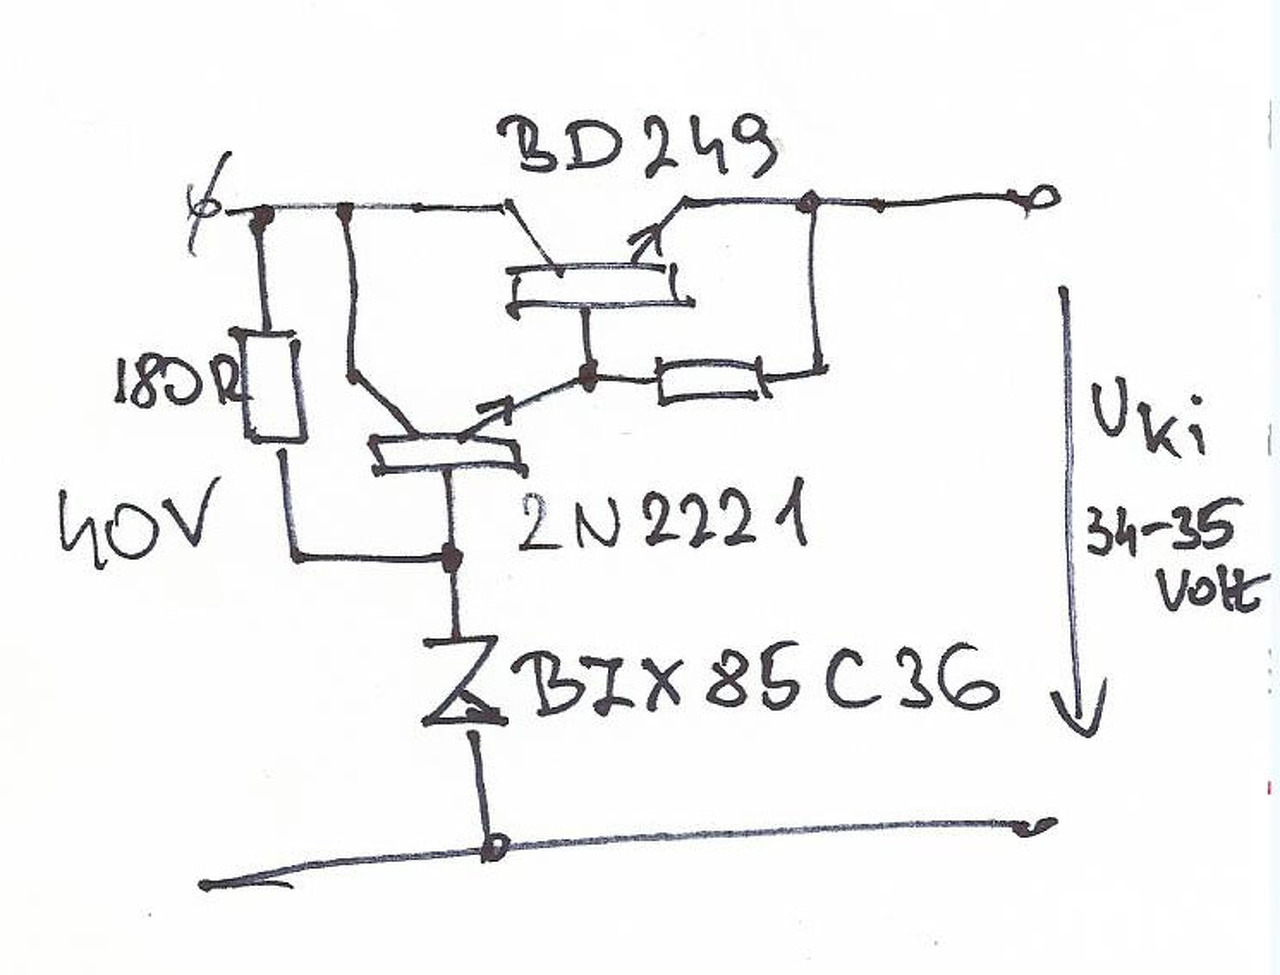 BD249
180R
40V
2N2221
Uki
34-35
Volt
BZX85C36